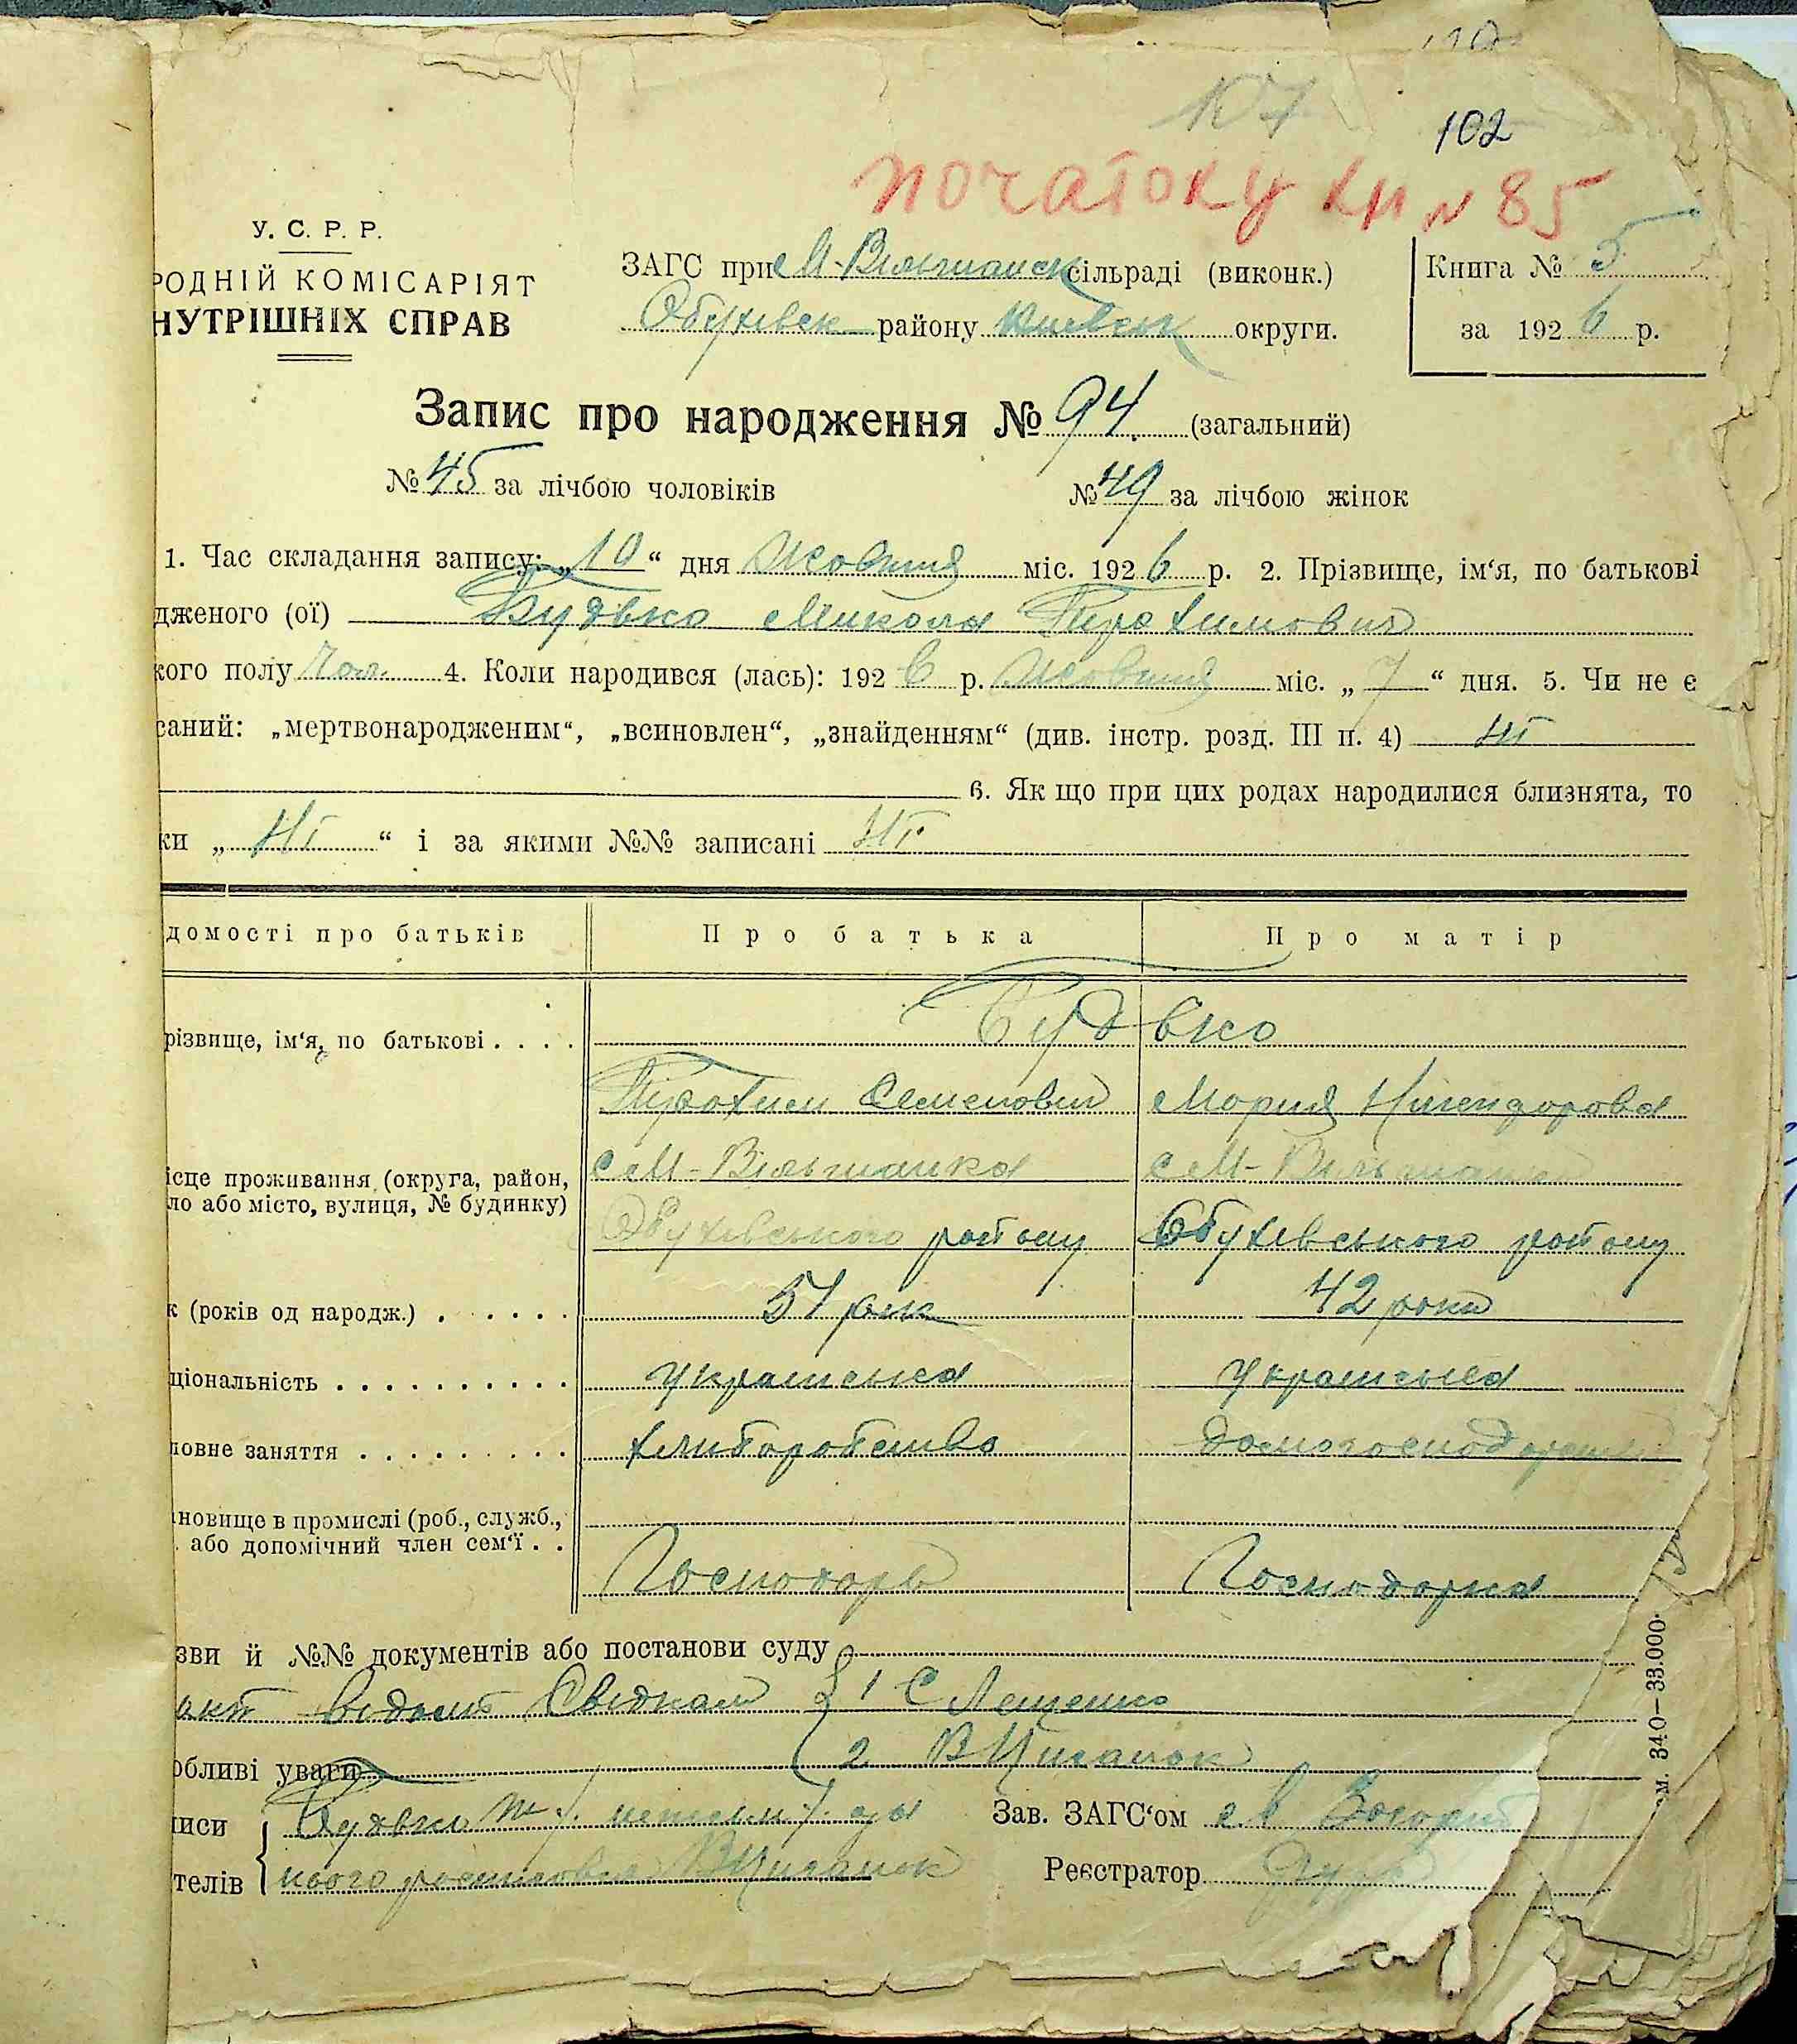 107
102
початоку кн № 85
У. С. Р. Р.
РОДНІЙ КОМІСАРІЯТ
НУТРІШНІХ СПРАВ
ЗАГС при М-Вільшанск сільраді (виконк.)
Обухівск району Київськ округи.
Книга № 5
за 1926 р.
Запис про народження № 94 (загальний)
№ 45 за лічбою чоловіків № 49 за лічбою жінок
1. Час складання запису: „10“ дня Жовтня міс. 1926 р. 2. Прізвище, ім‘я, по батькові
дженого (ої) Будько Микола Трохимович
кого полу чол. 4. Коли народився (лась): 1926 р. Жовтня міс. „7“ дня. 5. Чи не є
саний: „мертвонародженим“, „всиновлен“, „знайденням“ (див. інстр. розд. III п. 4) Ні
6. Як що при цих родах народилися близнята, то
ки „Ні“ і за якими №№ записані Ні
домості про батьків Про батька Про матір
різвище, ім‘я, по батькові . . . . Будько
Трохим Семенович Мария Никифорова
ісце проживання (округа, район, с М-Вільшанка с М-Вільшанка
ло або місто, вулиця, № будинку)
Обухівського району Обухівського району
к (років од народж.) . . . . . . 51 рік 42 роки
ціональність . . . . . . . . . . українська українська
ловне заняття . . . . . . . . . хлиборобство домогосподарство
новище в промислі (роб., служб.,
або допомічний член сем‘ї . . Господарь Господарка
зви й №№ документів або постанови суду
акт Свідкам { 1 С Лещенко
обливі уваги 2 В Циганок
иси Будько Зав. ЗАГС‘ом
телів нього росписовся В Циганок Реєстратор
м. 340—33.000.